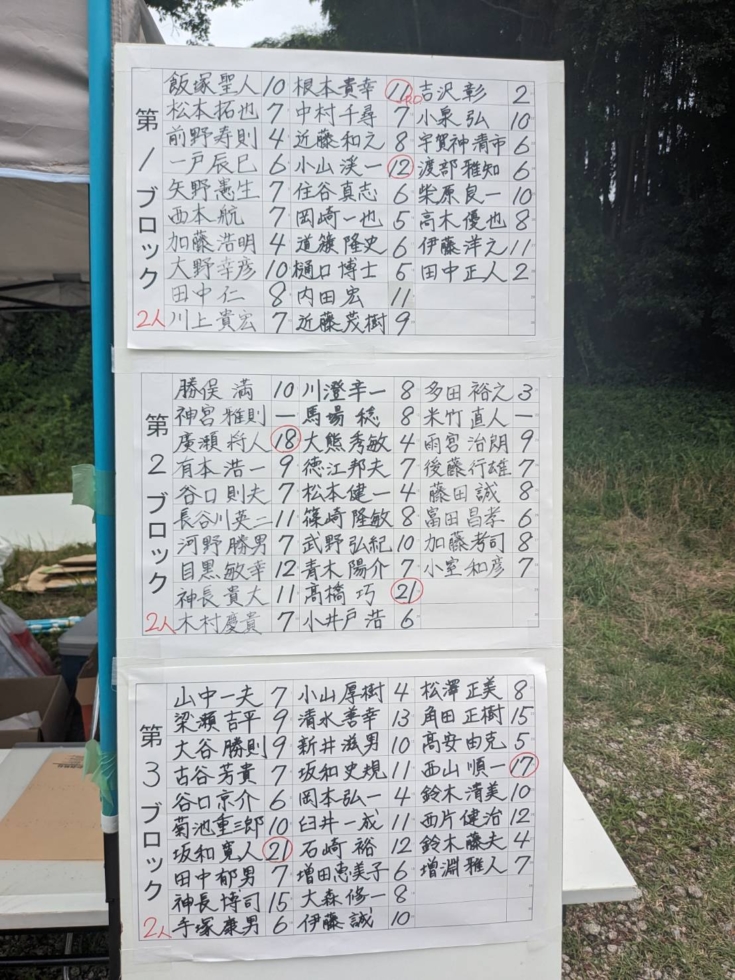 第1ブロック
2人
飯塚聖人 10 根本貴幸 11 RO 吉沢彰 2
松本拓也 7 中村千尋 7 小泉弘 10
前野寿則 4 近藤和之 8 宇賀神清市 6
一戸辰巳 6 小山渓一 12 渡部雅知 6
矢野憲生 7 住谷真志 6 柴原良一 10
西本航 7 岡崎一也 5 高木優也 8
加藤浩明 4 道籏隆史 6 伊藤洋之 11
大野幸彦 10 樋口博士 5 田中正人 2
田中仁 8 内田宏 11
川上貴宏 7 近藤茂樹 9
第2ブロック
2人
勝俣満 10 川澄幸一 8 多田裕之 3
神宮雅則 ー 馬場稔 8 米竹直人 ー
廣瀬将人 18 大熊秀敏 4 雨宮治朗 9
有本浩一 9 徳江邦夫 7 後藤行雄 7
谷口則夫 7 松本健一 4 藤田誠 8
長谷川英二 11 篠崎隆敏 8 富田昌孝 6
河野勝男 7 武野弘紀 10 加藤考司 8
目黒敏幸 12 青木陽介 7 小室和彦 7
神長貴大 11 高橋巧 21
木村慶貴 7 小井戸浩 6
第3ブロック
2人
山中一夫 7 小山厚樹 4 松澤正美 8
梁瀬吉平 9 清水善幸 13 角田正樹 15
大谷勝則 9 新井滋男 10 高安由克 5
古谷芳貴 7 坂和史規 11 西山順一 17
谷口京介 6 岡本弘一 4 鈴木清美 10
菊池重三郎 10 臼井一成 11 西片健治 12
坂和寛人 21 石崎裕 12 鈴木藤夫 4
田中郁男 7 増田恵美子 6 増淵雅人 7
神長博司 15 大森修一 8
手塚康男 6 伊藤誠 10